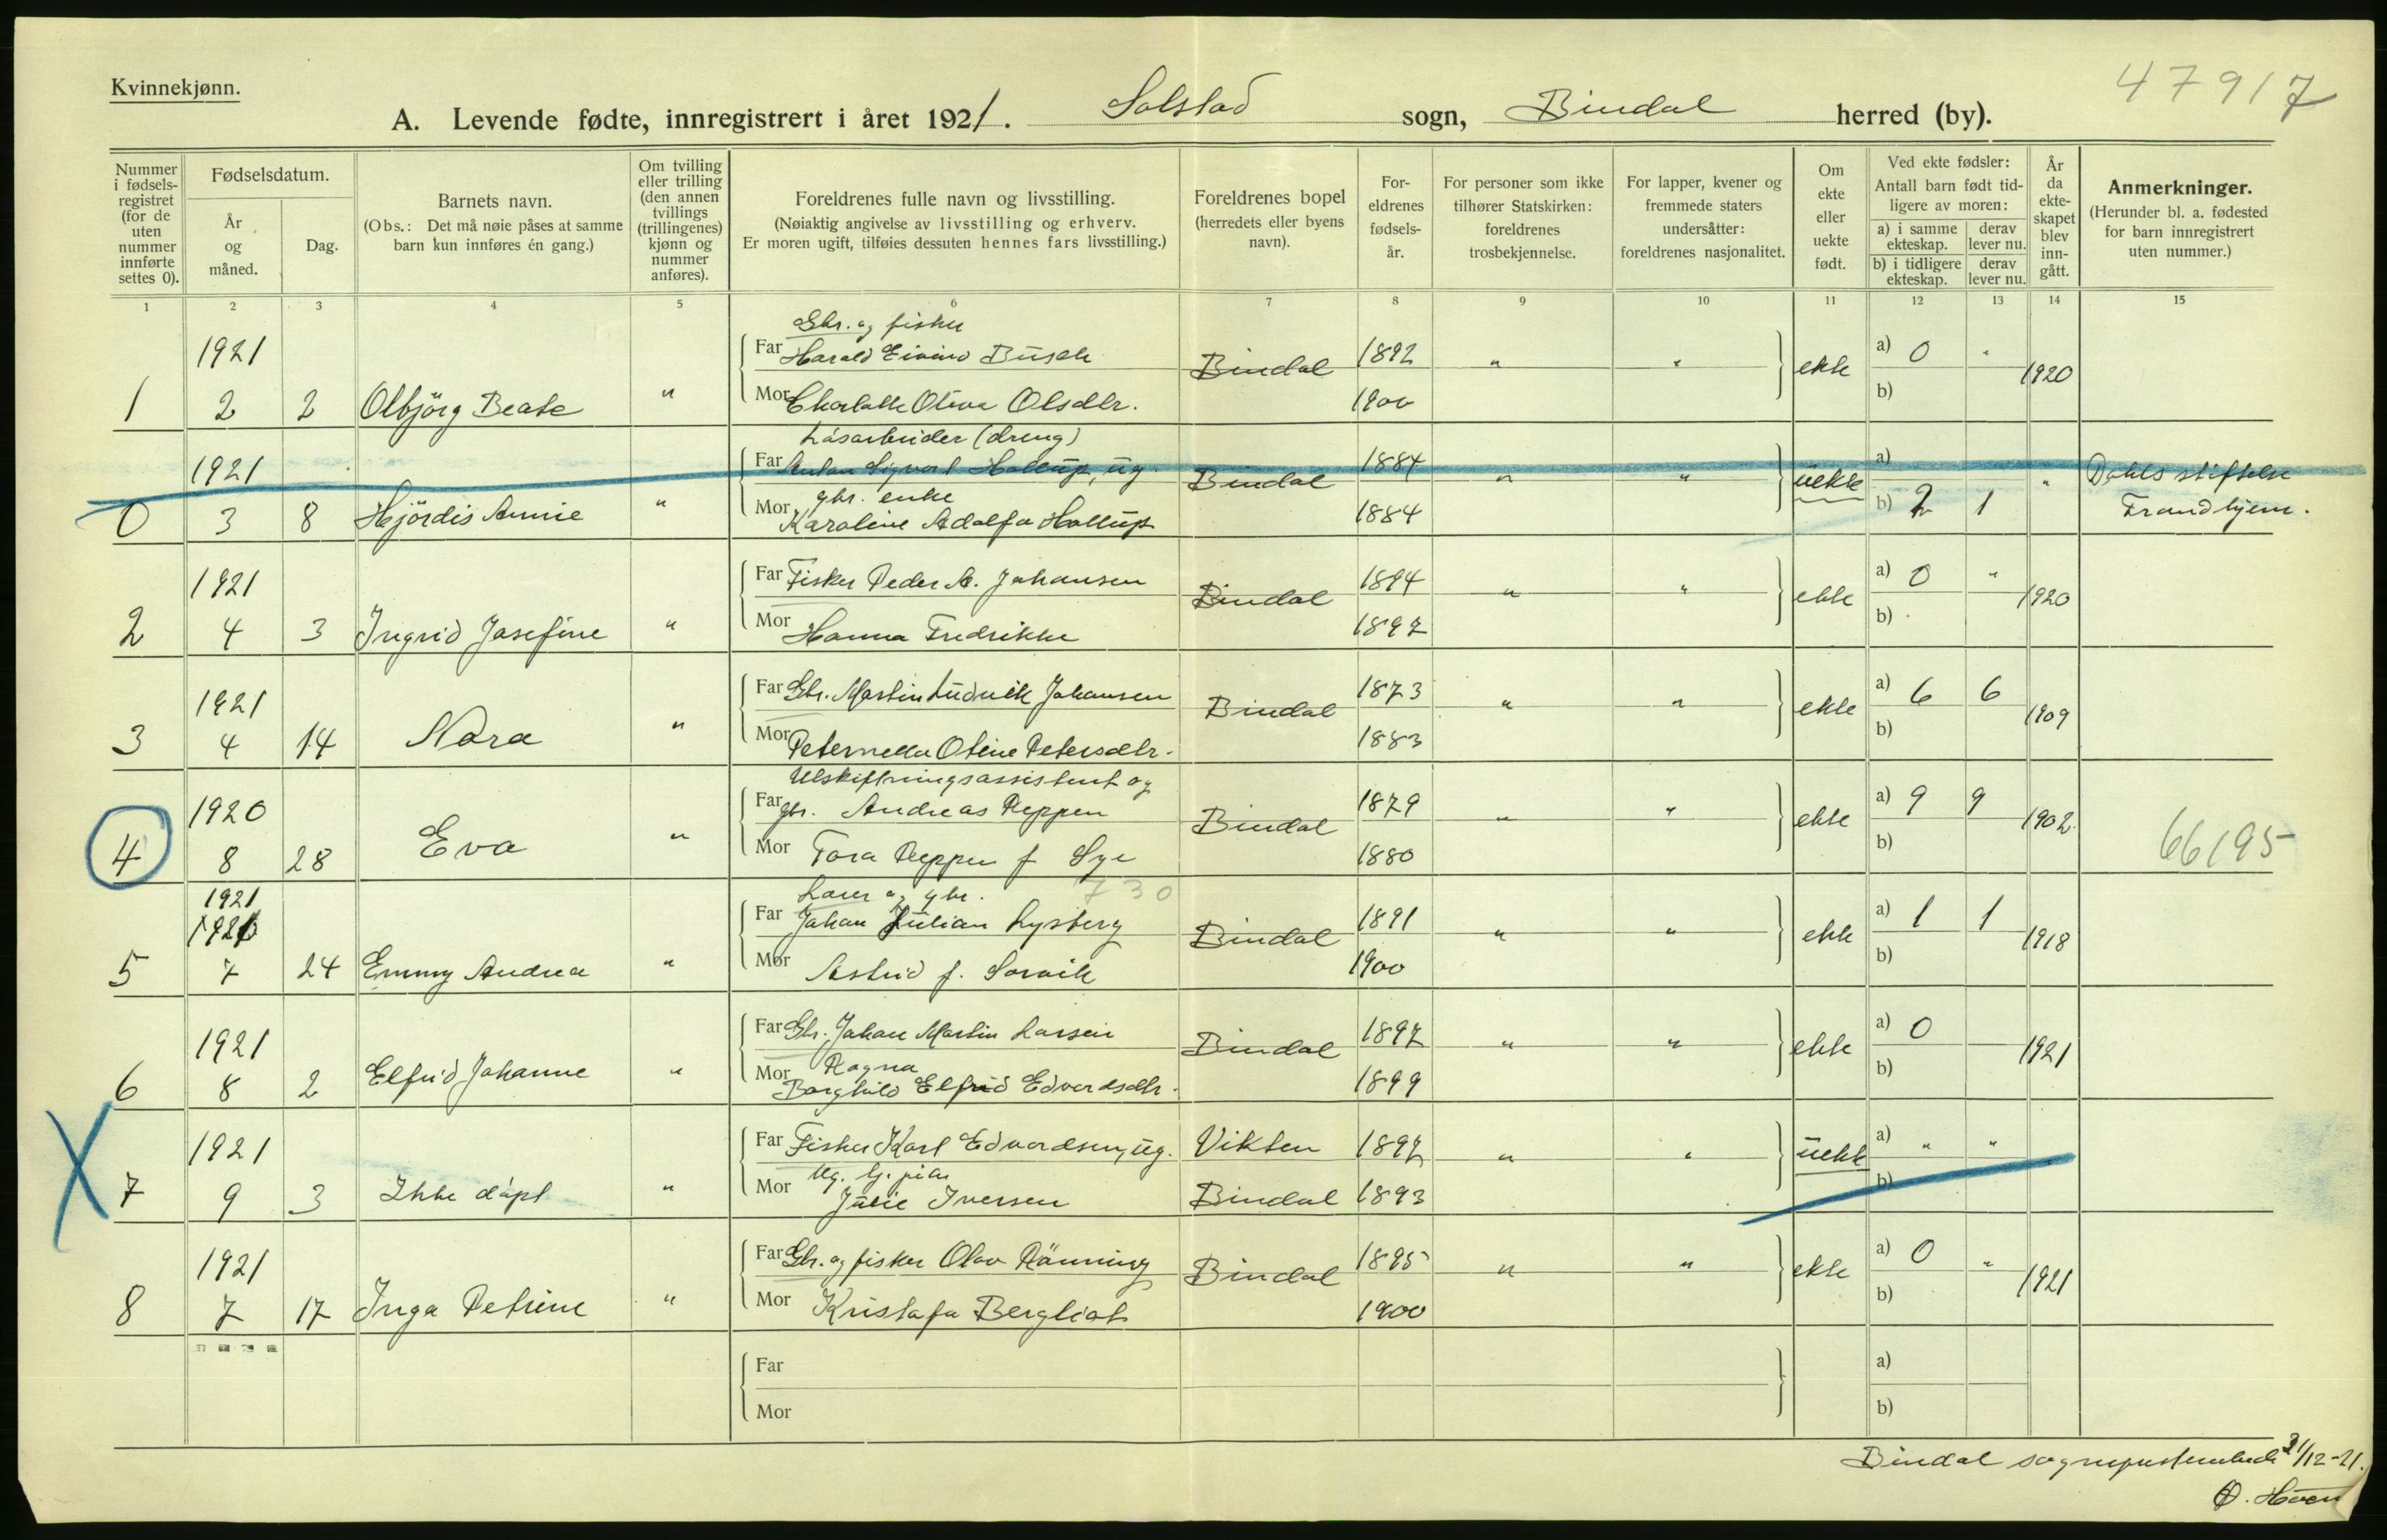 Kvinnekjønn.
47917
A. Levende fødte, innregistrert i året 1921. Solstad sogn, Bindal herred (by).
Nummer i fødselsregistret (for de uten nummer innførte settes 0).
Fødselsdatum.
År og måned.
Dag.
Barnets navn.
(Obs.: Det må nøie påses at samme barn kun innføres én gang.)
Om tvilling eller trilling (den annen tvillings (trillingenes) kjønn og nummer anføres).
Foreldrenes fulle navn og livsstilling.
(Nøiaktig angivelse av livsstilling og erhverv.
Er moren ugift, tilføies dessuten hennes fars livsstilling.)
Foreldrenes bopel (herredets eller byens navn).
Foreldrenes fødselsår.
For personer som ikke tilhører Statskirken: foreldrenes trosbekjennelse.
For lapper, kvener og fremmede staters undersåtter: foreldrenes nasjonalitet.
Om ekte eller uekte født.
Ved ekte fødsler:
Antall barn født tidligere av moren:
a) i samme ekteskap.
derav lever nu.
b) i tidligere ekteskap.
derav lever nu.
År da ekteskapet blev inngått.
Anmerkninger.
(Herunder bl. a. fødested for barn innregistrert uten nummer.)
1 2 3 4 5 6 7 8 9 10 11 12 13 14 15
Gbr. og fisker
1921 Far Harald Eivind Busch Bindal 1892 " " ekte a) 0 " 1920
1 2 2 Olbjörg Beate " Mor Charlotte Oliva Olsdtr. 1900 b)
Løsarbeider (dreng)
1921 Far Anton Sigvart Hollup, ug. Bindal 1884 " " uekte a) " Dahls stiftelse
gbr. enke
0 3 8 Hjördis Annie " Mor Karoline Adolfa Hollup 1884 b) 2 1 Trondhjem.
1921 Far Fisker Peder A. Johansen Bindal 1894 " " ekte a) 0 " 1920
2 4 3 Ingrid Josefine " Mor Hanna Fredrikke 1897 b)
1921 Far Gbr. Martin Ludvik Johansen Bindal 1873 " " ekte a) 6 6 1909
3 4 14 Nora " Mor Peternella Oline Petersdtr. 1883 b)
Utskiftningsassistent og
1920 Far gbr. Andreas Reppen Bindal 1879 " " ekte a) 9 9 1902
4 8 28 Eva " Mor Tora Reppen f. Sye 1880 b) 66195
1921 Lærer og gbr. 730
1920 Far Johan Julian Lysberg Bindal 1891 " " ekte a) 1 1 1918
5 7 24 Emmy Andrea " Mor Astrid f. Sørvik 1900 b)
1921 Far Gbr. Johan Martin Larsen Bindal 1897 " " ekte a) 0 1921
Ragna
6 8 2 Elfrid Johanne " Mor Borghild Elfrid Edvardsdtr. 1899 b)
1921 Far Fisker Karl Edvardsen, ug. Vikten 1897 " " uekte a) " "
Ug. tj. pike
7 9 3 Ikke døpt " Mor Julie Iversen Bindal 1893 b)
1921 Far Gbr. og fisker Olav Rönning Bindal 1895 " " ekte a) 0 " 1921
8 7 17 Inga Petrine " Mor Kristofa Bergliot 1900 b)
Far a)
Mor b)
Bindal sogneprestembede 31/12-21.